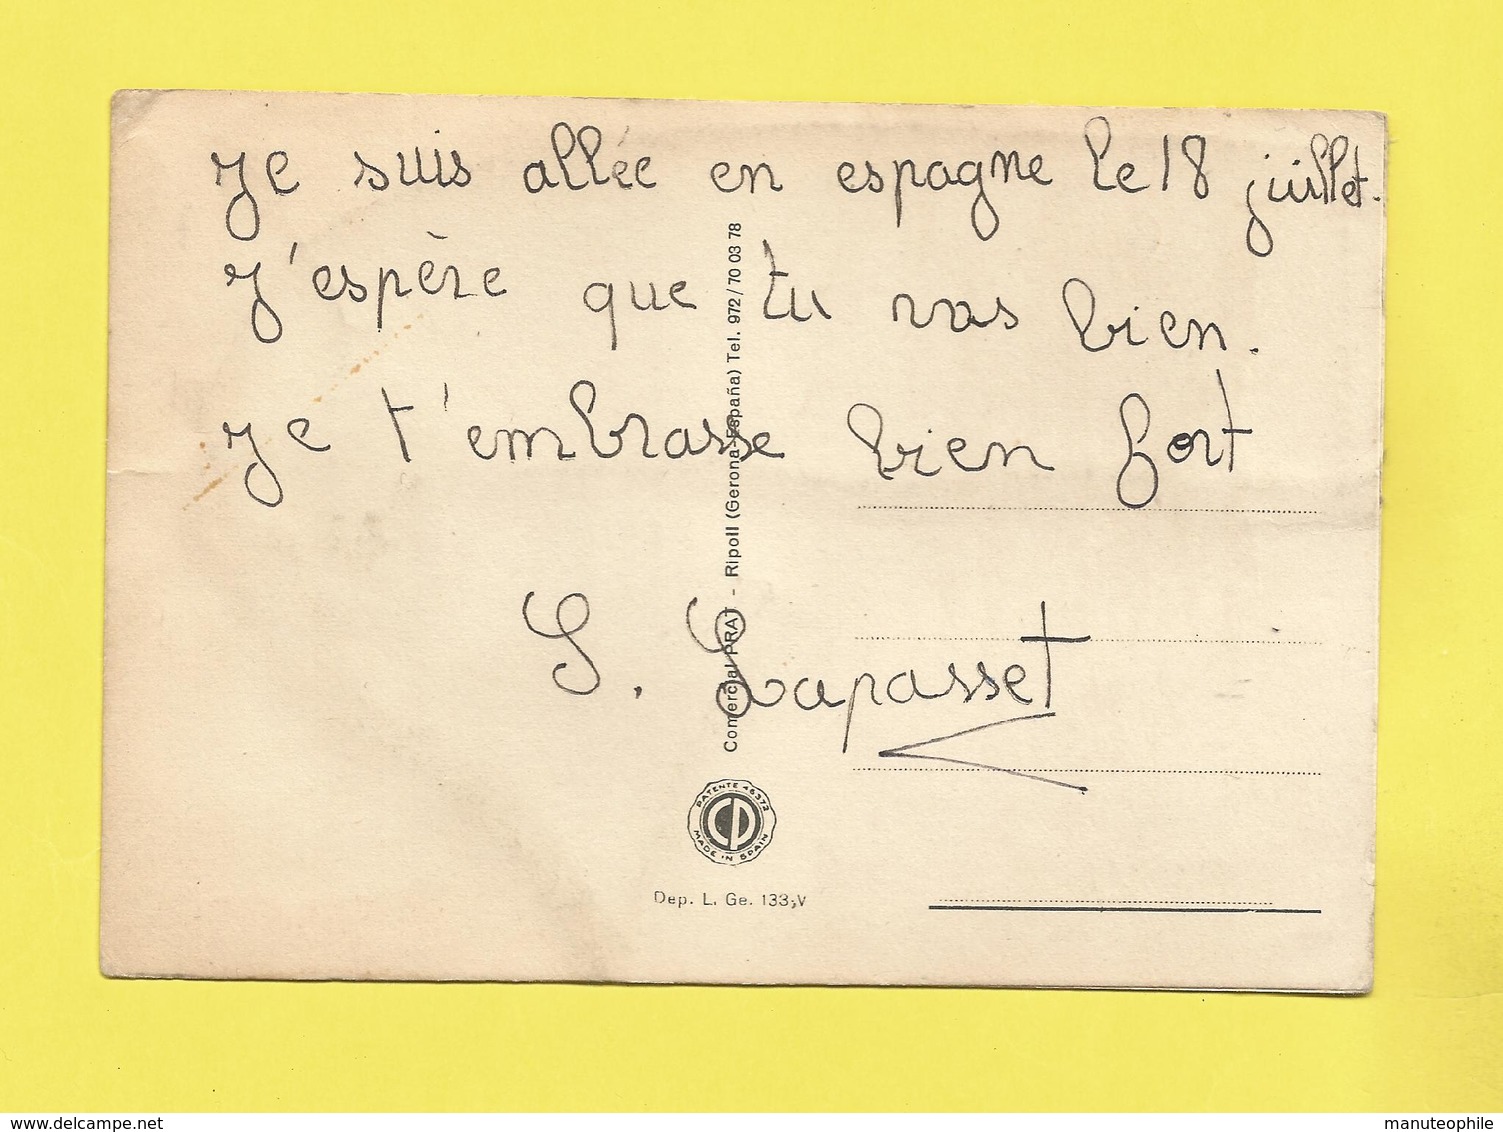 Je suis allée en espagne le 18 juillet.
J'espère que tu vas bien.
Je t'embrasse bien fort
S. Lapasset
Comercial PRAT - Ripoll (Gerona-España) Tel. 972/70 03 78
PATENTE 46372
CP
MADE IN SPAIN
Dep. L. Ge. 133-V
manuteophile